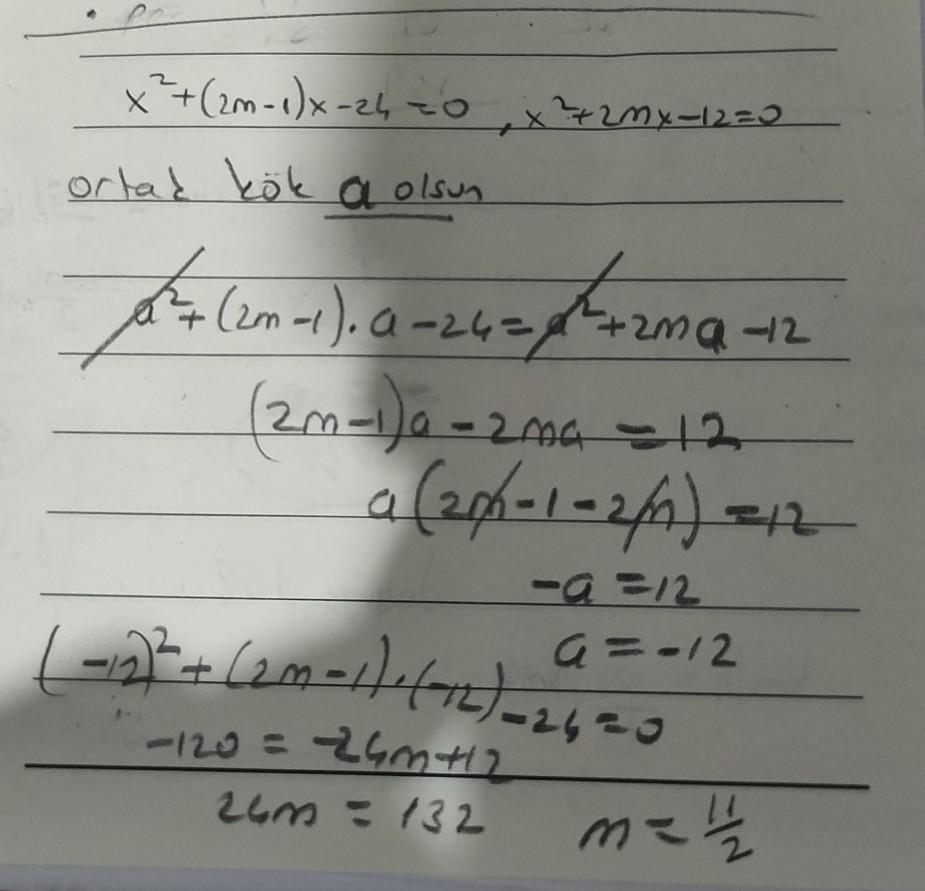 x²+(2m-1)x-24=0, x²+2mx-12=0
ortak kök a olsun
a²+(2m-1).a-24=a²+2ma-12
(2m-1)a-2ma=12
a(2m-1-2m)=12
-a=12
a=-12
(-12)²+(2m-1).(-12)-24=0
-120=-24m+12
24m=132 m=11/2